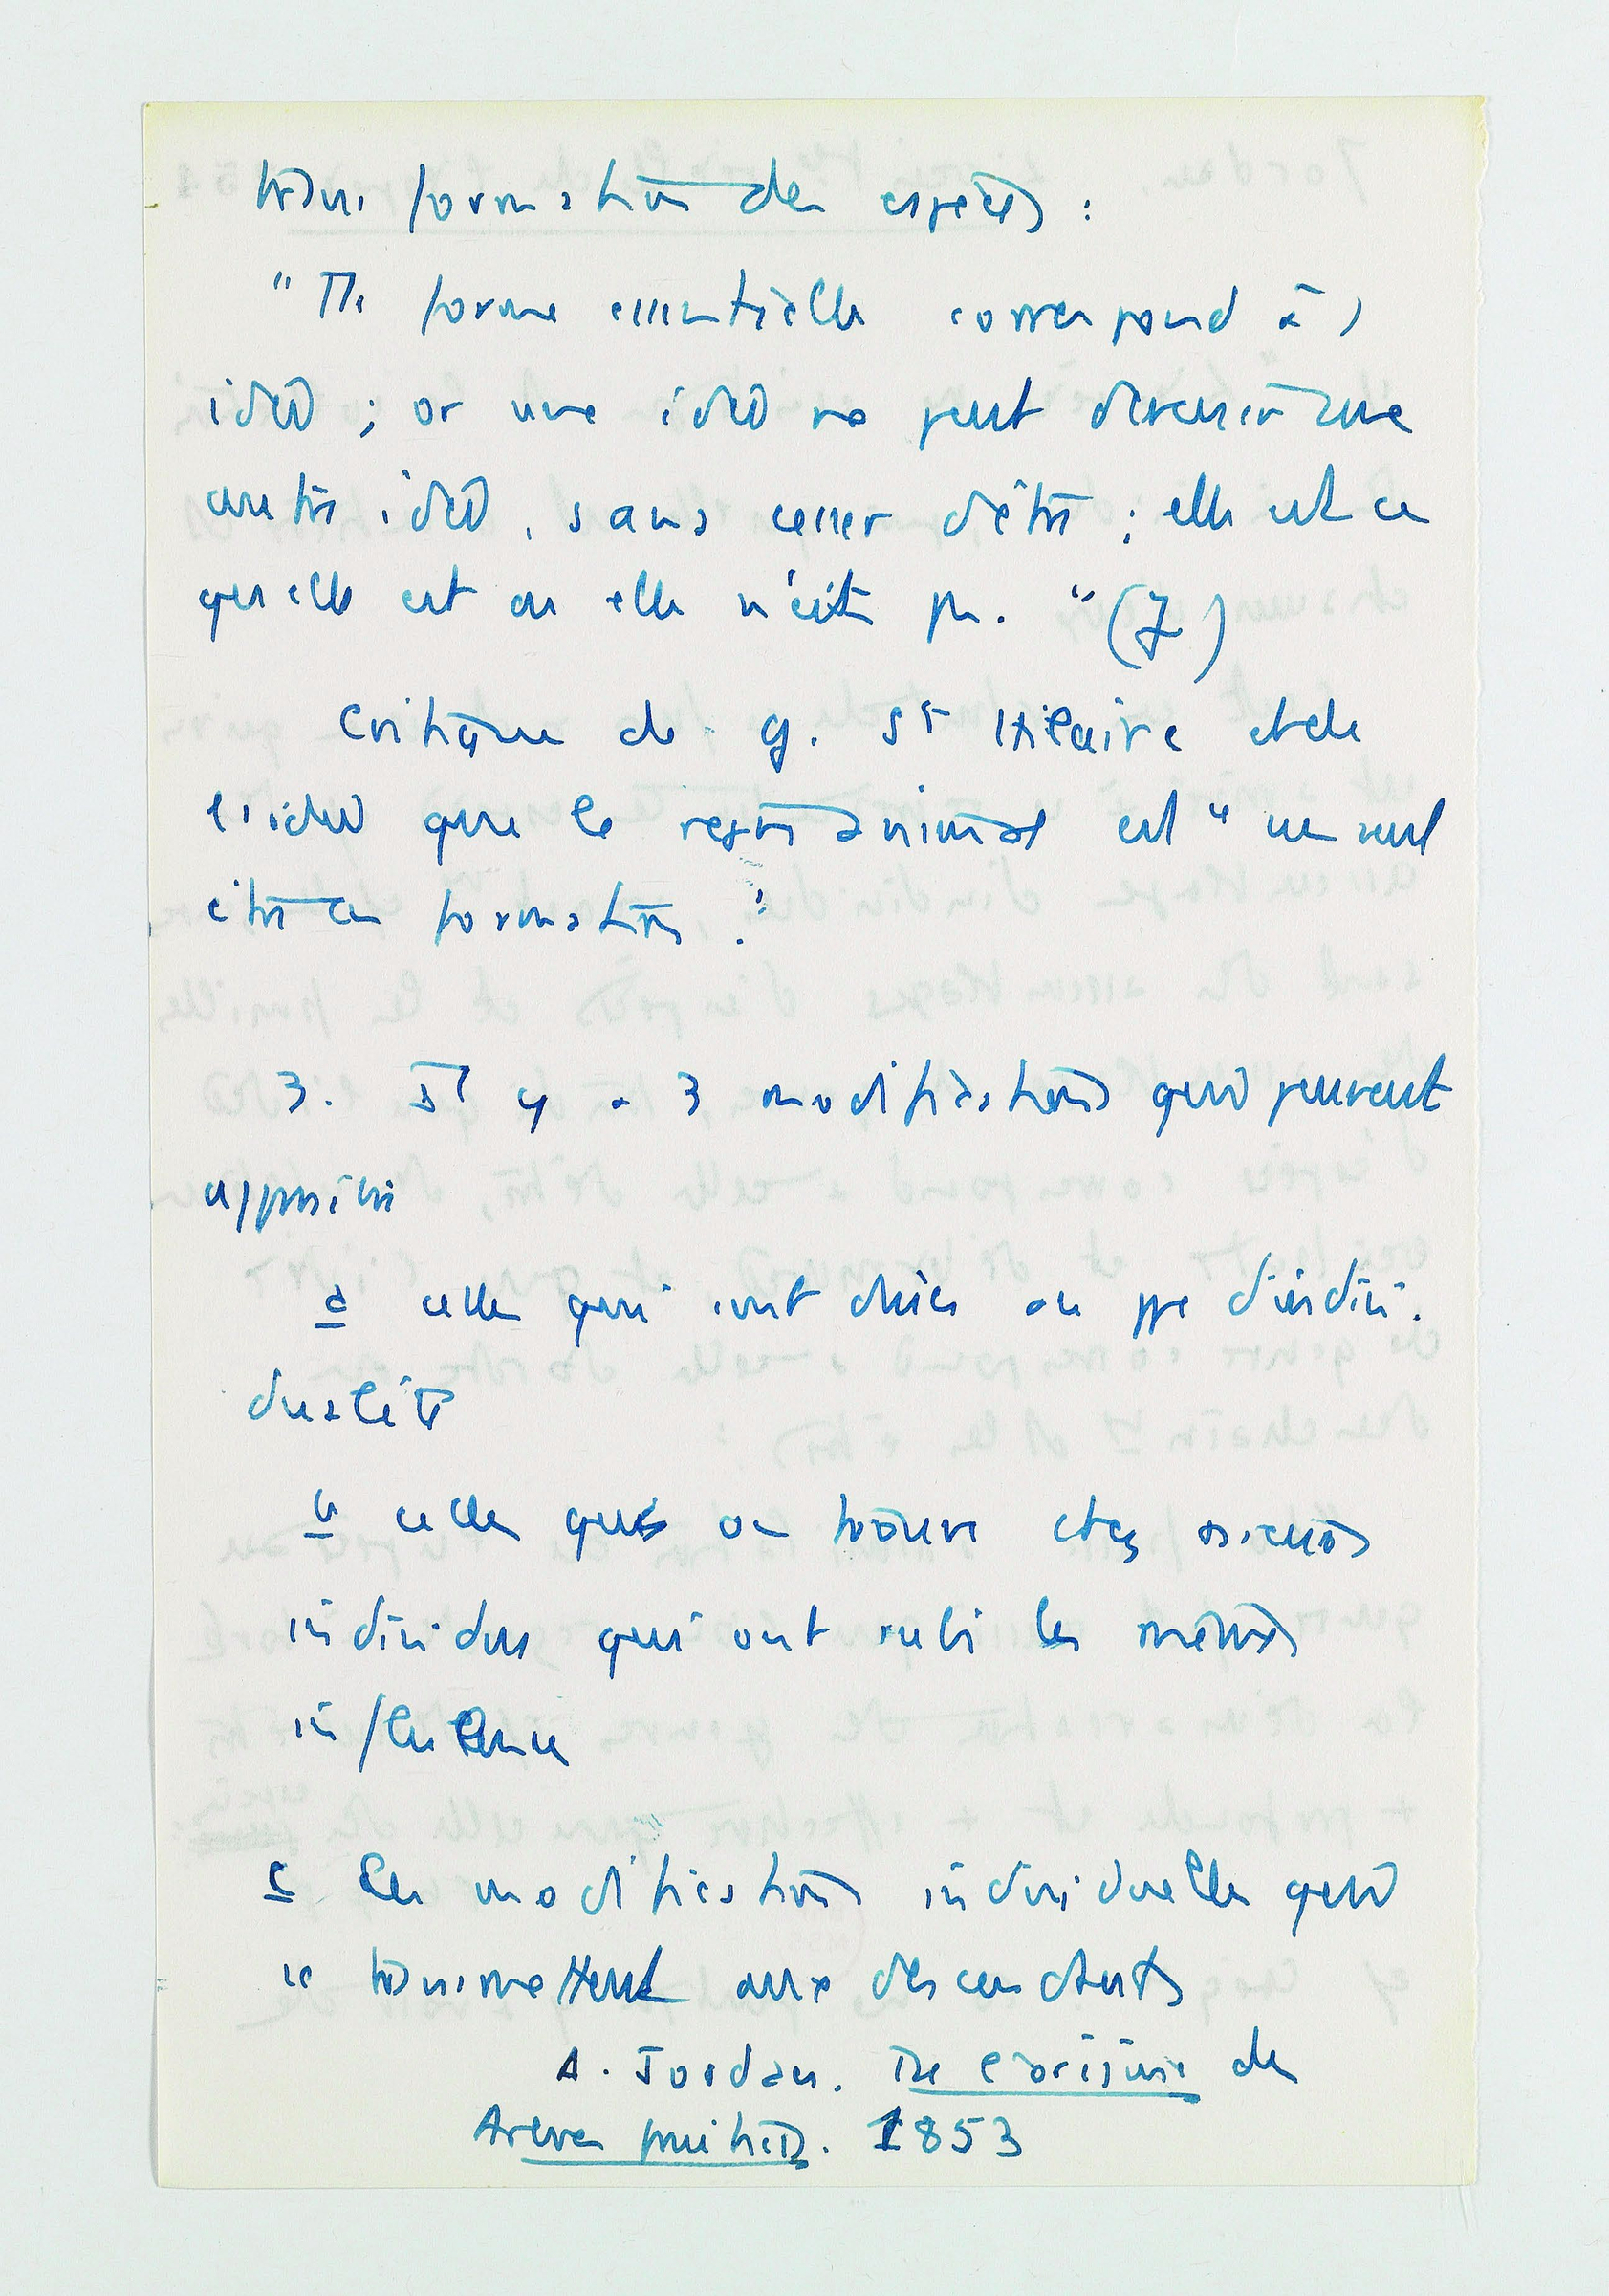 transformation des espèces :
" Tte forme essentielle correspond à 1
idée ; or une idée ne peut devenir une
autre idée, sans cesser d'être ; elle est ce
qu'elle est ou elle n'est pas. " (7)
Critique de G. St Hilaire et de
l'idée que le règne animal est " un seul
être en formation ".
3. Il y a 3 modifications qui peuvent
apparaître
a celles qui sont dues au ppe d'indivi-
dualité
b celles que on trouve chez plusieurs
individus qui ont subi les mêmes
influence
c les modifications individuelles qui
se transmettent aux descendants
A. Jordan. De l'origine des
Arbres fruitiers. 1853